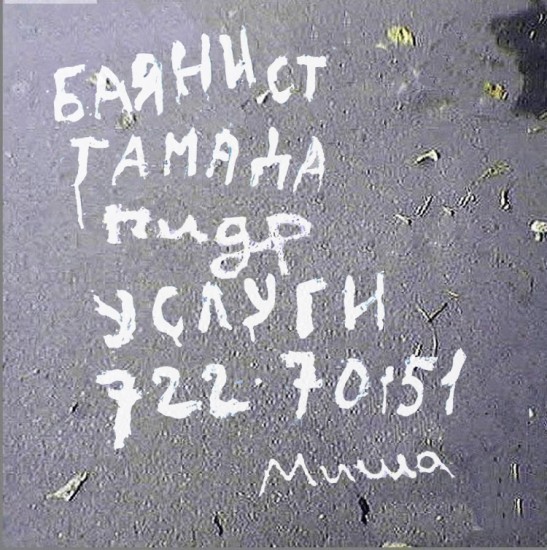 БАЯНИСТ
ТАМАДА
пидр
УСЛУГИ
722·70151
Миша